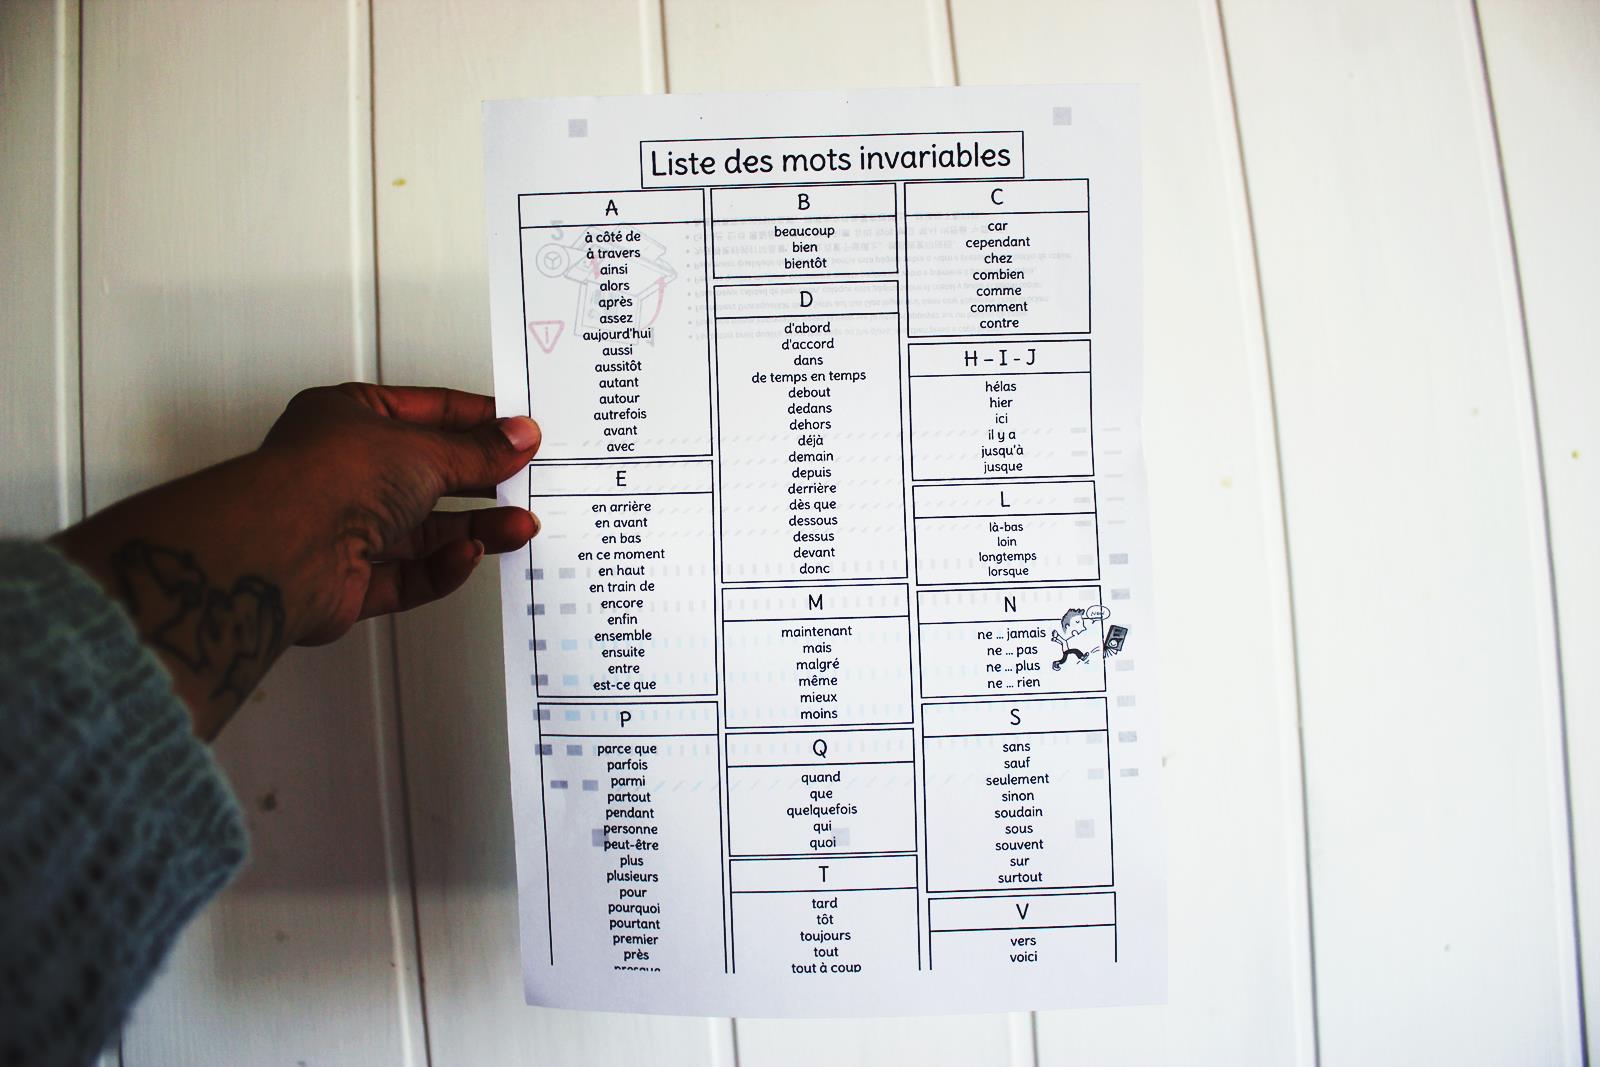 Liste des mots invariables
A
à côté de
à travers
ainsi
alors
après
assez
aujourd'hui
aussi
aussitôt
autant
autour
autrefois
avant
avec
E
en arrière
en avant
en bas
en ce moment
en haut
en train de
encore
enfin
ensemble
ensuite
entre
est-ce que
P
parce que
parfois
parmi
partout
pendant
personne
peut-être
plus
plusieurs
pour
pourquoi
pourtant
premier
près
B
beaucoup
bien
bientôt
D
d'abord
d'accord
dans
de temps en temps
debout
dedans
dehors
déjà
demain
depuis
derrière
dès que
dessous
dessus
devant
donc
M
maintenant
mais
malgré
même
mieux
moins
Q
quand
que
quelquefois
qui
quoi
T
tard
tôt
toujours
tout
tout à coup
C
car
cependant
chez
combien
comme
comment
contre
H - I - J
hélas
hier
ici
il y a
jusqu'à
jusque
L
là-bas
loin
longtemps
lorsque
N
ne ... jamais
ne ... pas
ne ... plus
ne ... rien
S
sans
sauf
seulement
sinon
soudain
sous
souvent
sur
surtout
V
vers
voici